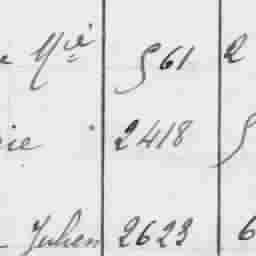 Mie 561 2
ie 2418 5
Julien 2623 6